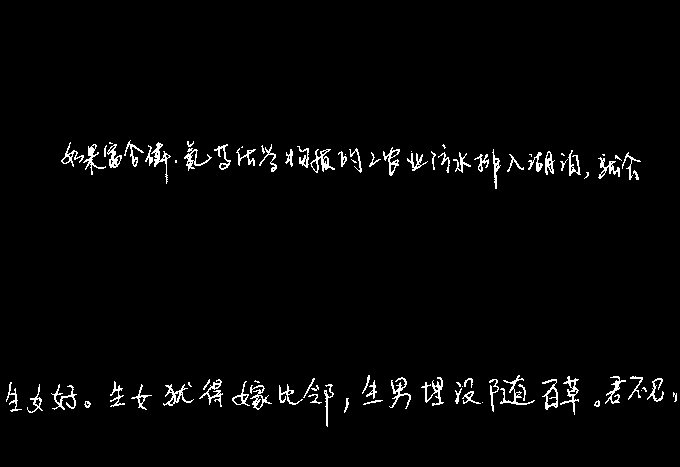 如果富含磷、氮等化学物报的工农业污水排入湖泊,就会
生女好。生女犹得嫁比邻,生男埋没随百草。君不见,